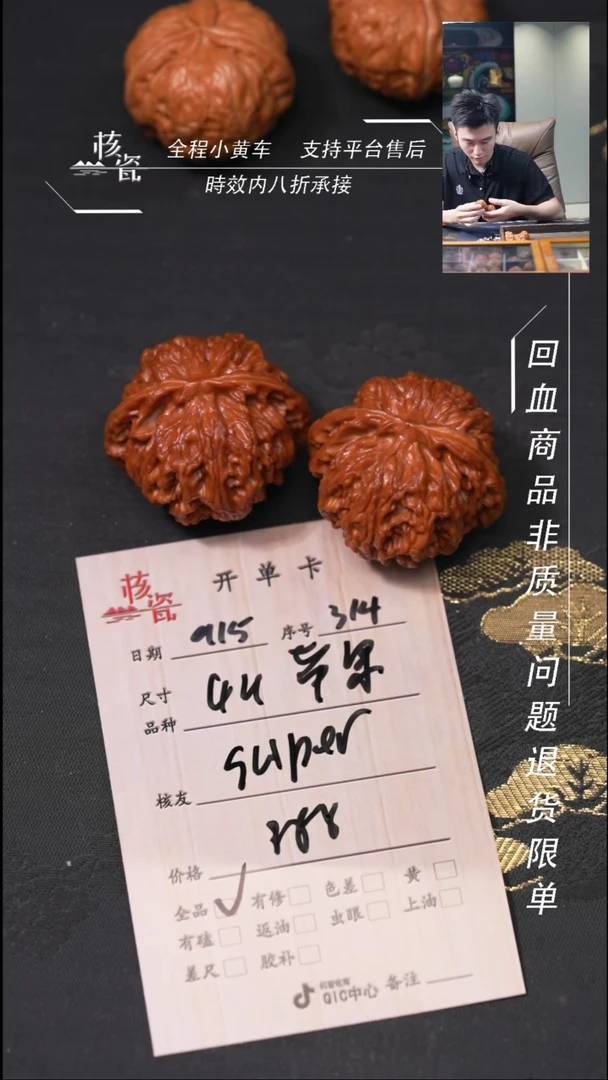 核瓷
全程小黄车 支持平台售后
時效内八折承接
回血商品非质量问题退货限单
核瓷
开单卡
日期 915 序号 314
尺寸
品种 44 苹果
核友 super
价格 388
全品 有修 色差 黄
有磕 返油 虫眼 上油
差尺 胶补
QIC中心 备注